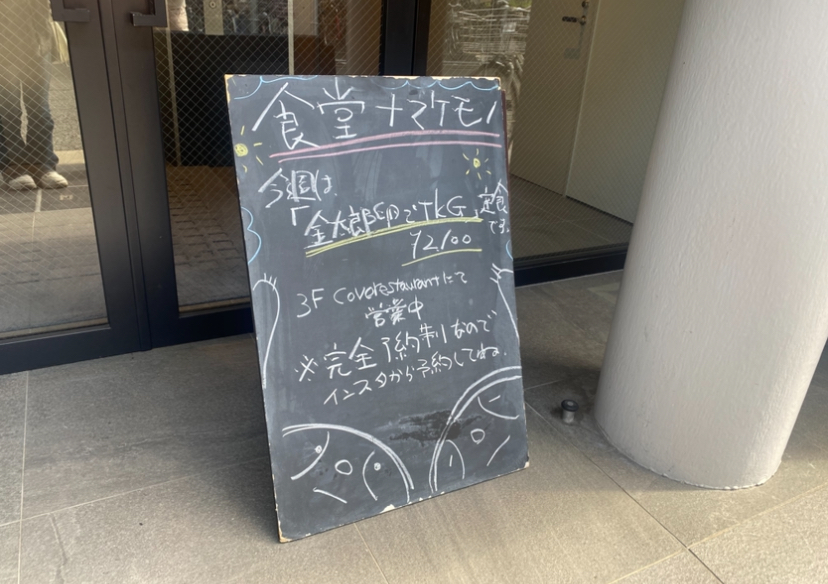 食堂ナマケモノ
今週は
「金太郎印でTKG」定食
です。
¥2100
3F Covorestaurantにて
営業中
※完全予約制なので
インスタから予約してね。